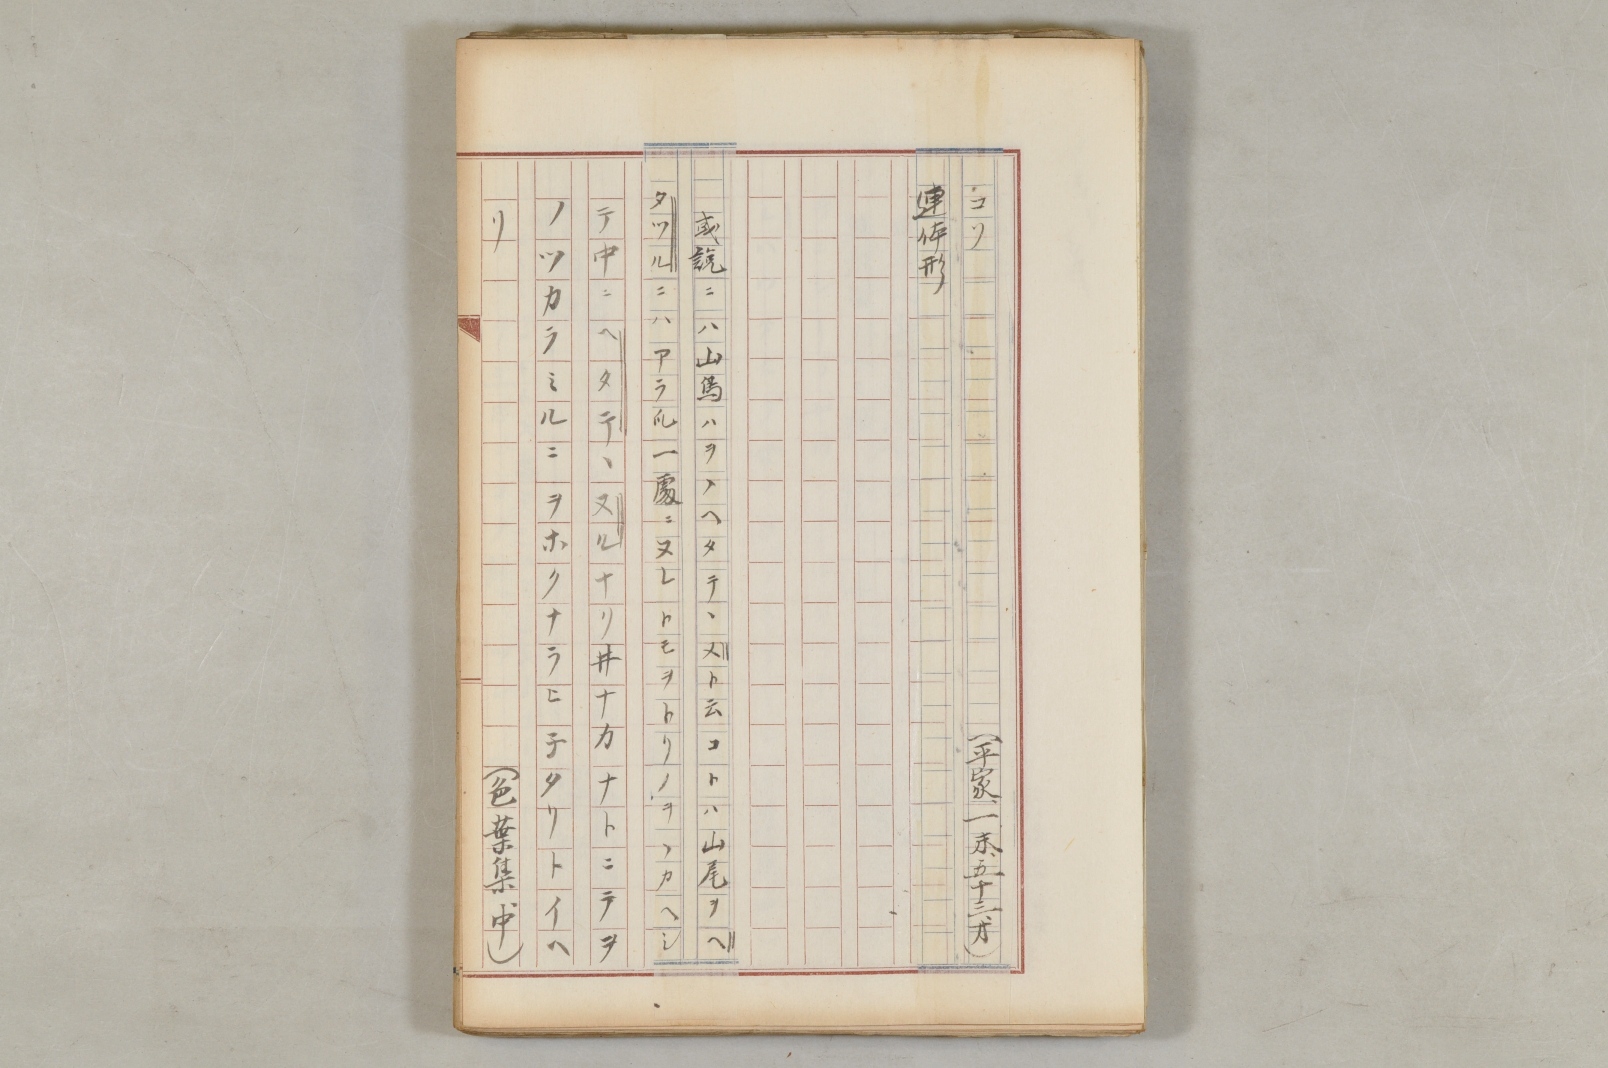 コソ　（平家、一末、五十三、オ）
連体形
或説ニハ山鳥ハヲヽヘタテヽヌト云コトハ山尾ヲヘ
タツルニハアラス一處ニヌレトモヲトリノヲヽカヘシ
テ中ニヘタテヽヌルナリ井ナカナトニテヲ
ノツカラミルニヲホクナラヒ子タリトイヘ
リ　（色葉集中）